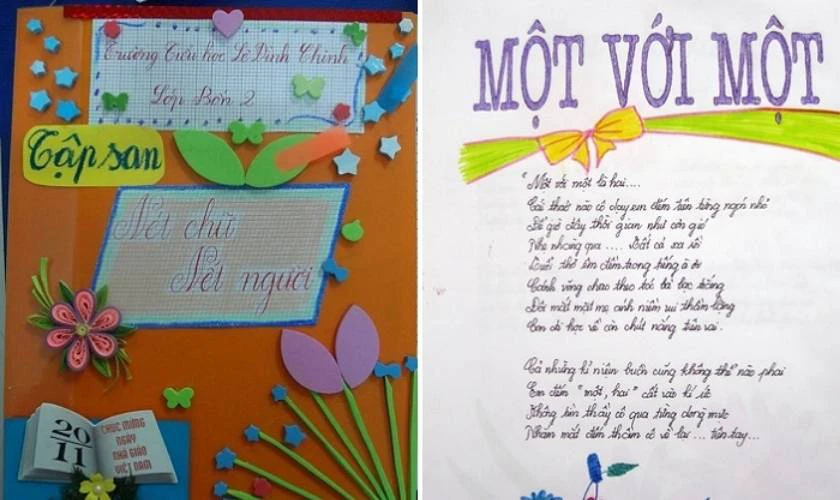 Trường Tiểu học Lê Đình Chinh
Lớp Bốn 2
Tập san
Nét chữ
Nết người
20
11
CHÚC MỪNG
NGÀY
NHÀ GIÁO
VIỆT NAM
MỘT VỚI MỘT
"Một với một là hai....
Cái thuở nào cô dạy em đếm trên từng ngón nhỏ
Để giờ đây thời gian như cơn gió
Nhẹ nhàng qua .... Bất cả xa rồi
Tuổi thơ êm đềm trong tiếng à ơi
Cánh võng chao theo tóc bà bạc trắng
Đôi mắt mẹ ánh niềm vui thầm lặng
Em đi học về còn chút nắng trên vai.
Cả những kỉ niệm buồn cũng không thể nào phai
Em đếm "một, hai" cất vào kí ức
Những tin thầy cô qua từng dòng mực
Nhắm mắt đếm thầm có về lại ... trên tay...